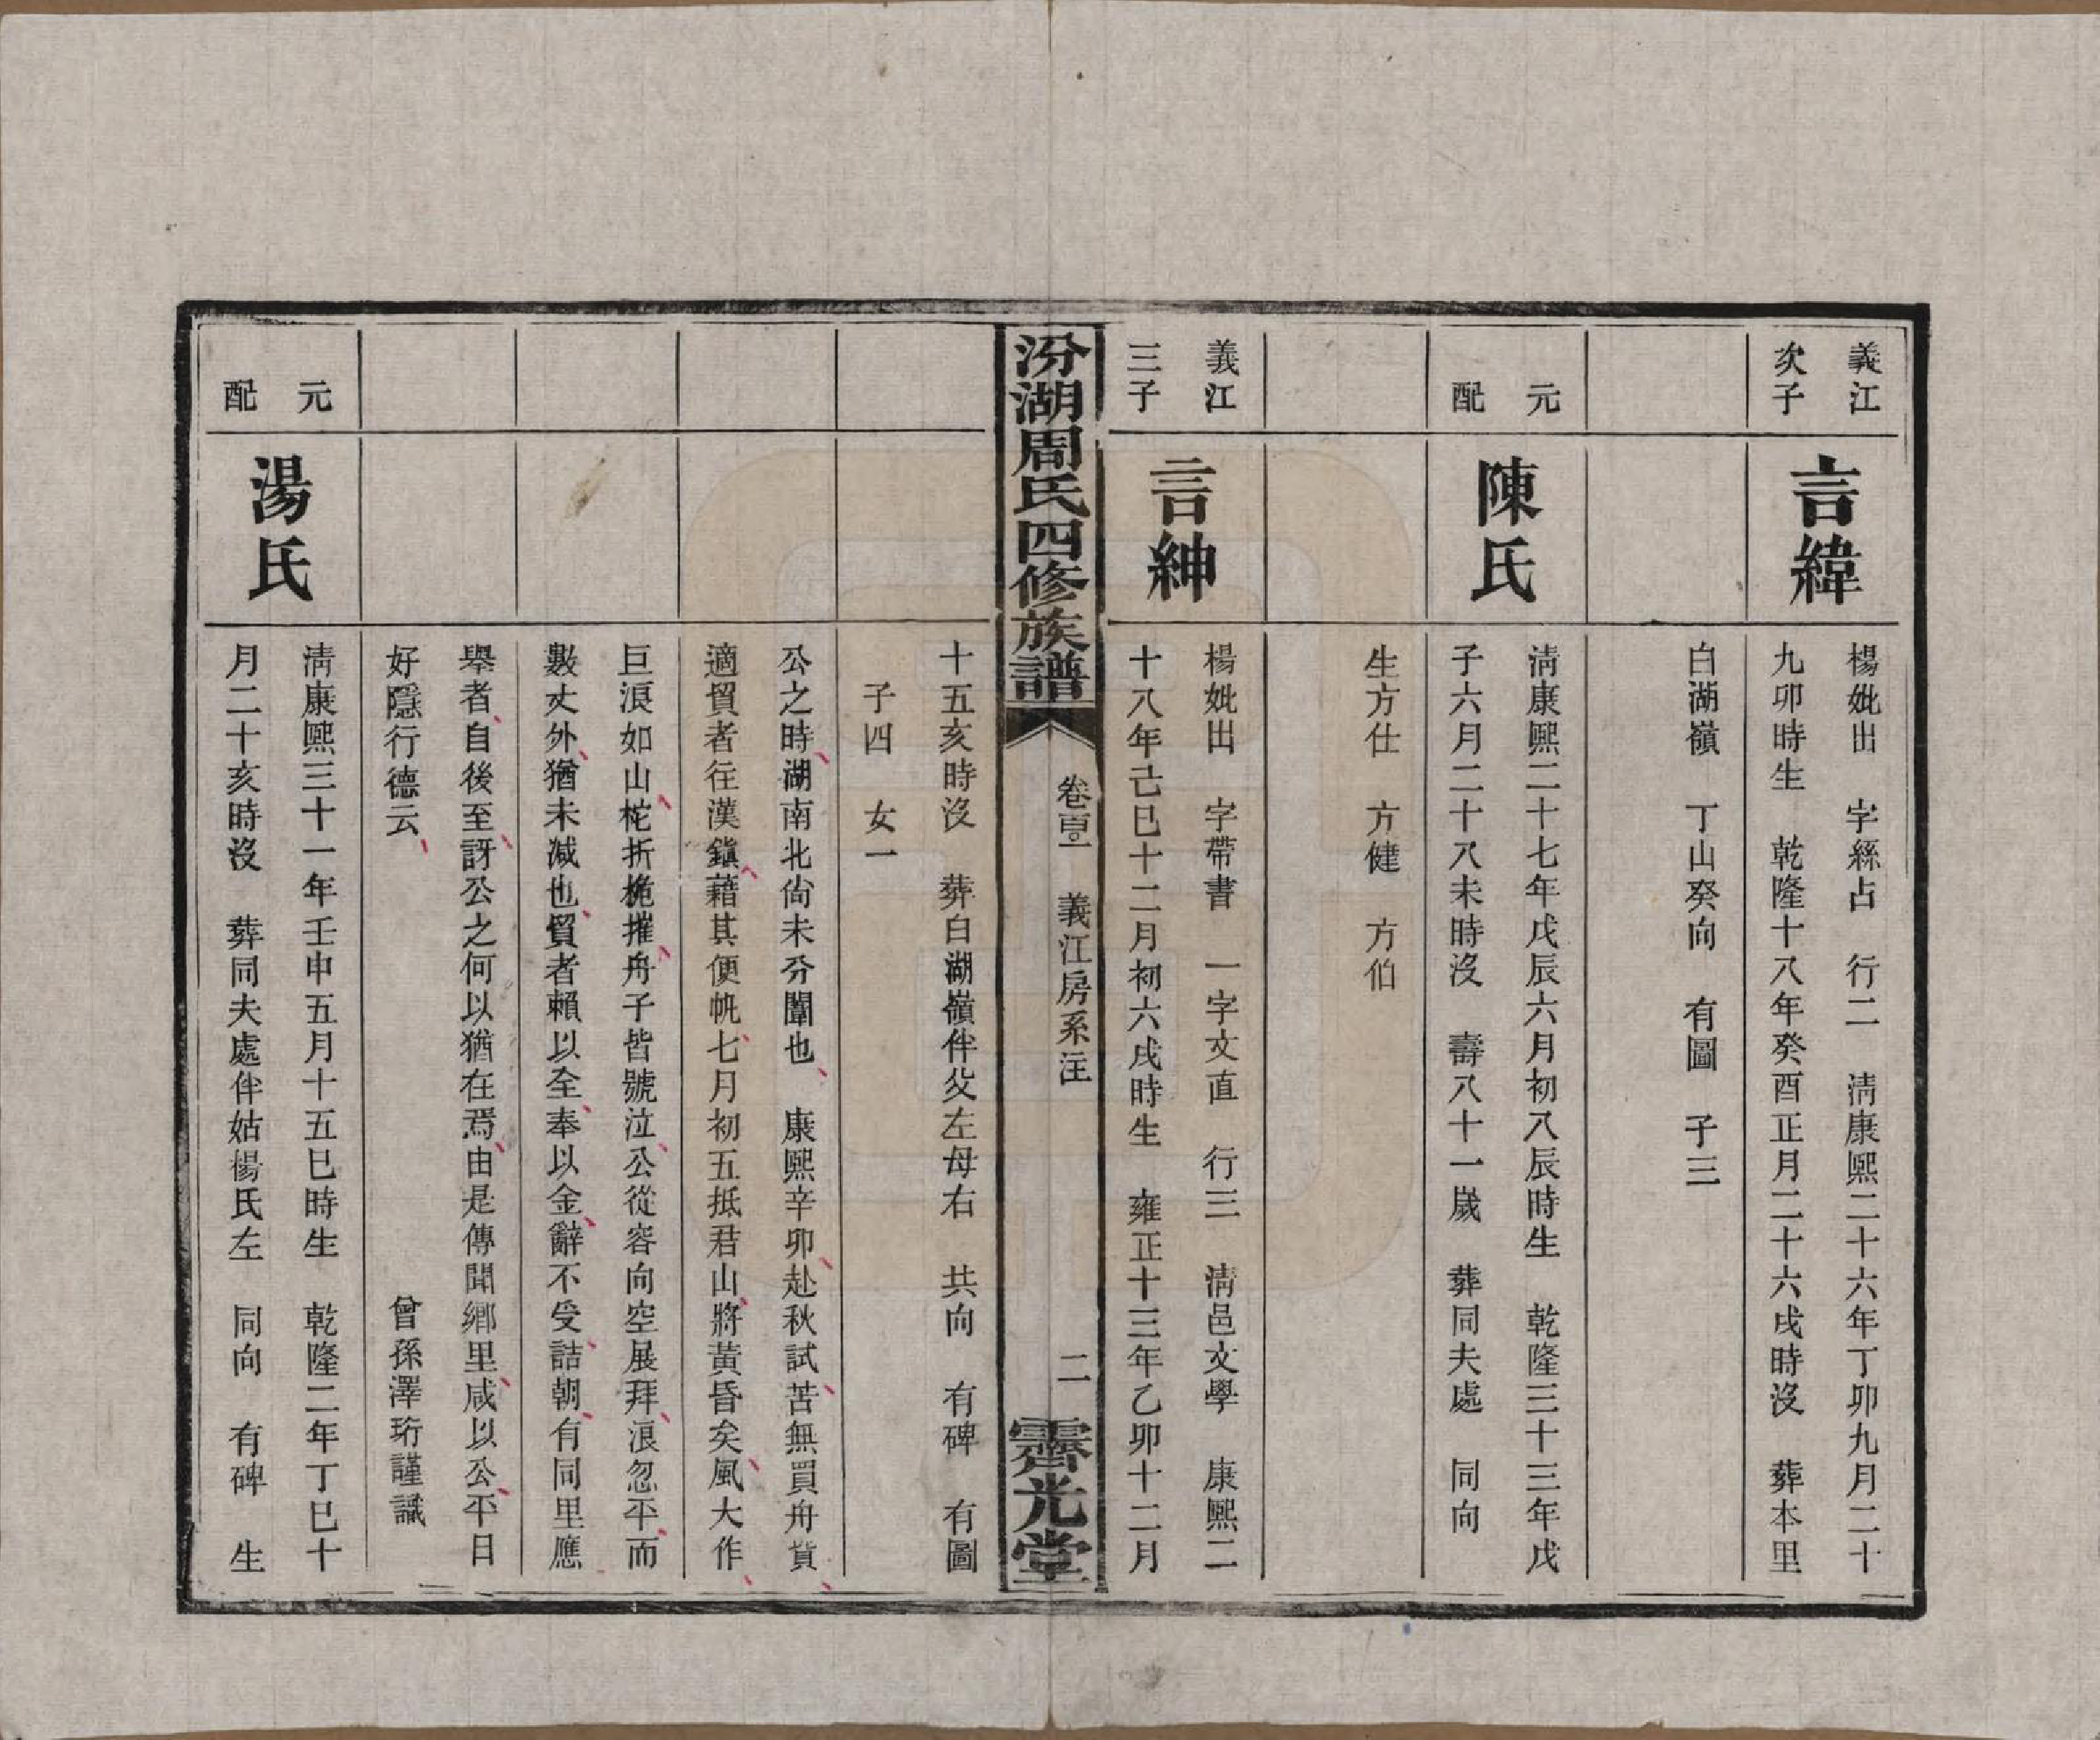 義江
次子
言緯
楊妣出　字絲占　行二　清康熙二十六年丁卯九月二十
九卯時生　乾隆十八年癸酉正月二十六戌時沒　葬本里
白湖嶺　丁山癸向　有圖　子三
元
配
陳氏
清康熙二十七年戊辰六月初八辰時生　乾隆三十三年戊
子六月二十八未時沒　壽八十一歲　葬同夫處　同向
生方仕　方健　方伯
義江
三子
言紳
楊妣出　字帶書　一字文直　行三　清邑文學　康熙二
十八年己巳十二月初六戌時生　雍正十三年乙卯十二月
汾湖周氏四修族譜
卷百〇一　義江房系注
二
霽光堂
十五亥時沒　葬白湖嶺伴父左母右　共向　有碑　有圖
子四　女一
公之時湖南北尙未分闈也　康熙辛卯赴秋試苦無買舟貲
適貿者往漢鎭藉其便帆七月初五抵君山將黃昏矣風大作
巨浪如山柁折桅摧舟子皆號泣公從容向空展拜浪忽平而
數丈外猶未減也貿者賴以全奉以金辭不受詰朝有同里應
舉者自後至訝公之何以猶在焉由是傳聞鄉里咸以公平日
好隱行德云　曾孫澤珩謹識
元
配
湯氏
清康熙三十一年壬申五月十五巳時生　乾隆二年丁巳十
月二十亥時沒　葬同夫處伴姑楊氏左　同向　有碑　生